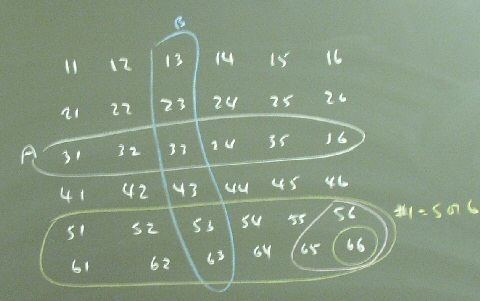 B
11 12 13 14 15 16
21 22 23 24 25 26
A 31 32 33 34 35 36
41 42 43 44 45 46
51 52 53 54 55 56 #1 = 5 or 6
61 62 63 64 65 66